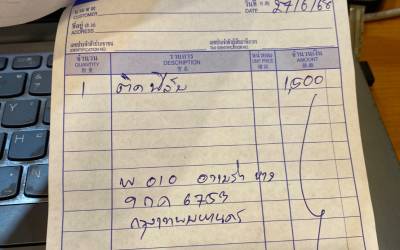 นาม ผู้ซื้อ
CUSTOMER
วันที่ ว.ด.ป.
DATE 27/6/68
ที่อยู่
ADDRESS
เลขประจำตัวประชาชน
IDENTIFICATION NO.
เลขประจำตัวผู้เสียภาษีอากร
TAX IDENTIFICATION NO.
จำนวน รายการ หน่วยละ จำนวนเงิน
QUANTITY DESCRIPTION UNIT PRICE AMOUNT
1 ติดฟิล์ม 1,500
9 กด 6753
กรุงเทพมหานคร